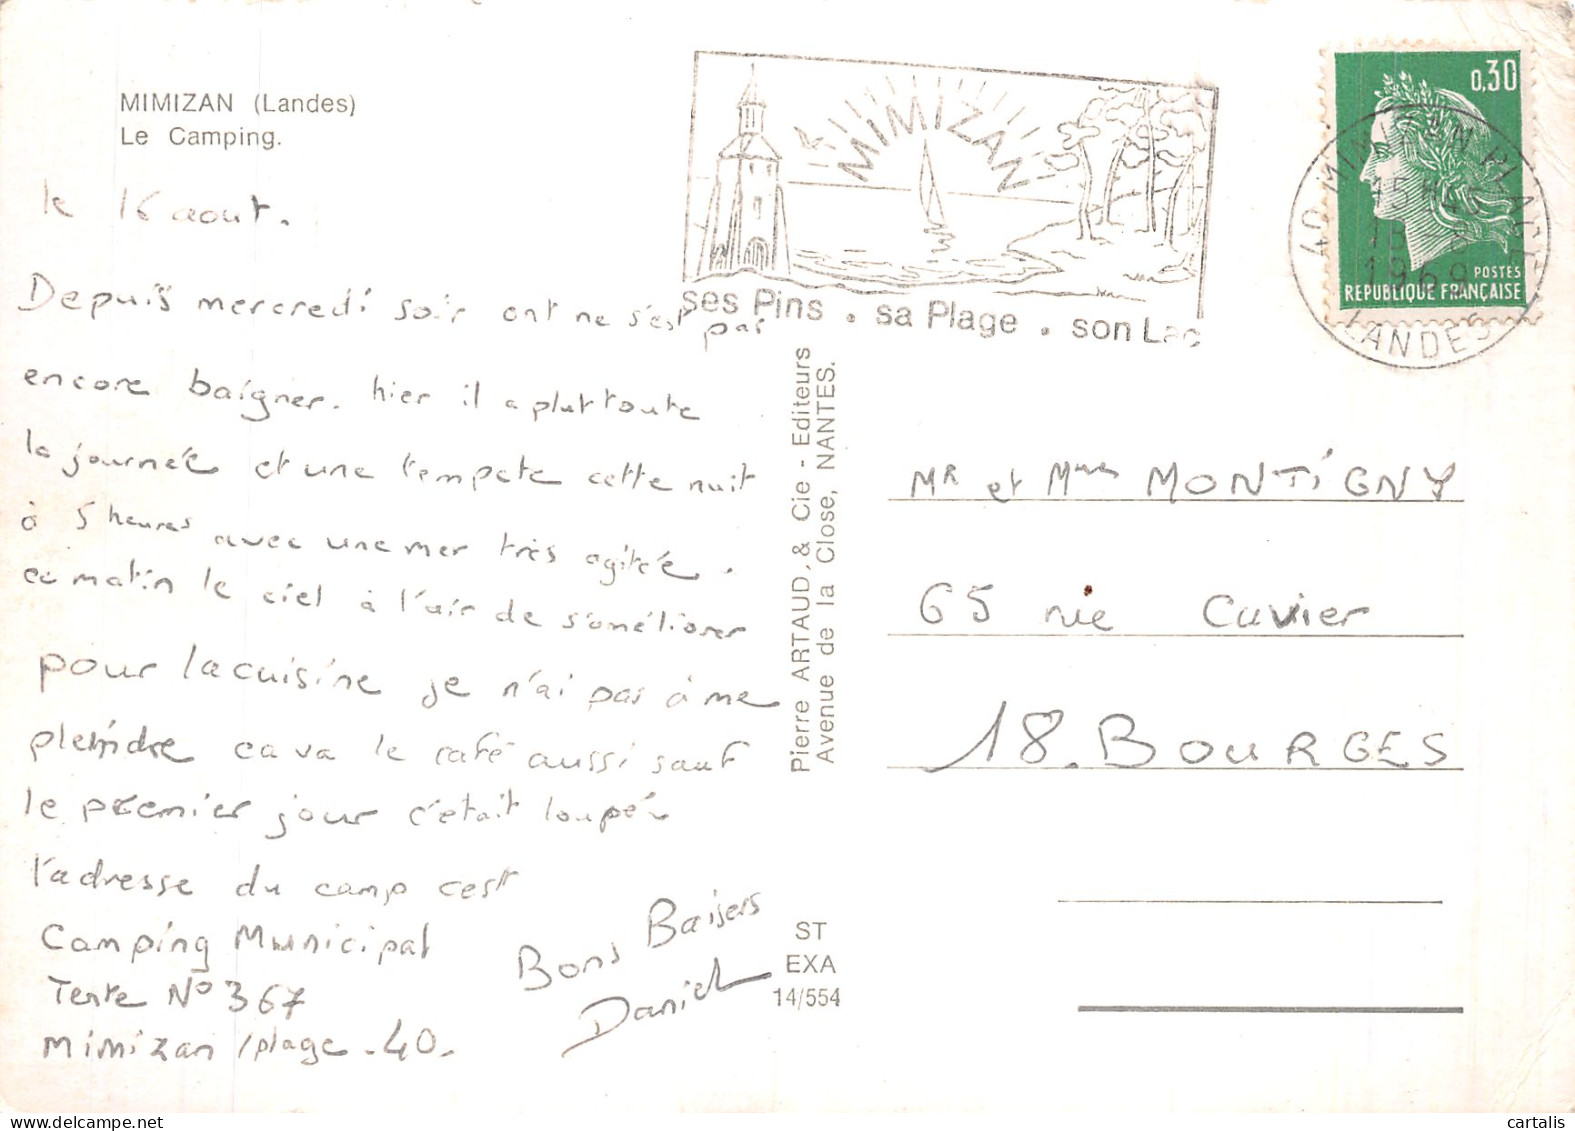 MIMIZAN (Landes)
Le Camping.
le 16 aout.
Depuis mercredi soir ont ne s'est pas
encore baigner. hier il a plut toute
la journée et une tempete cette nuit
à 5 heures avec une mer très agitée.
ce matin le ciel à l'air de s'améliorer
pour la cuisine je n'ai pas à me
pleindre ca va le café aussi sauf
le premier jour c'était loupé.
l'adresse du camp cest
Camping Municipal
Tente N° 367
Mimizan /plage - 40.
Bons Baisers
Daniel
MIMIZAN
ses Pins . sa Plage . son Lac
0,30
POSTES
REPUBLIQUE FRANÇAISE
40 MIMIZAN PLAGE
15 H45
1969
LANDES
Pierre ARTAUD, & Cie - Editeurs
Avenue de la Close, NANTES.
ST
EXA
14/554
MR et Mme MONTIGNY
65 rue Cuvier
18. BOURGES
cartalis
delcampe.net